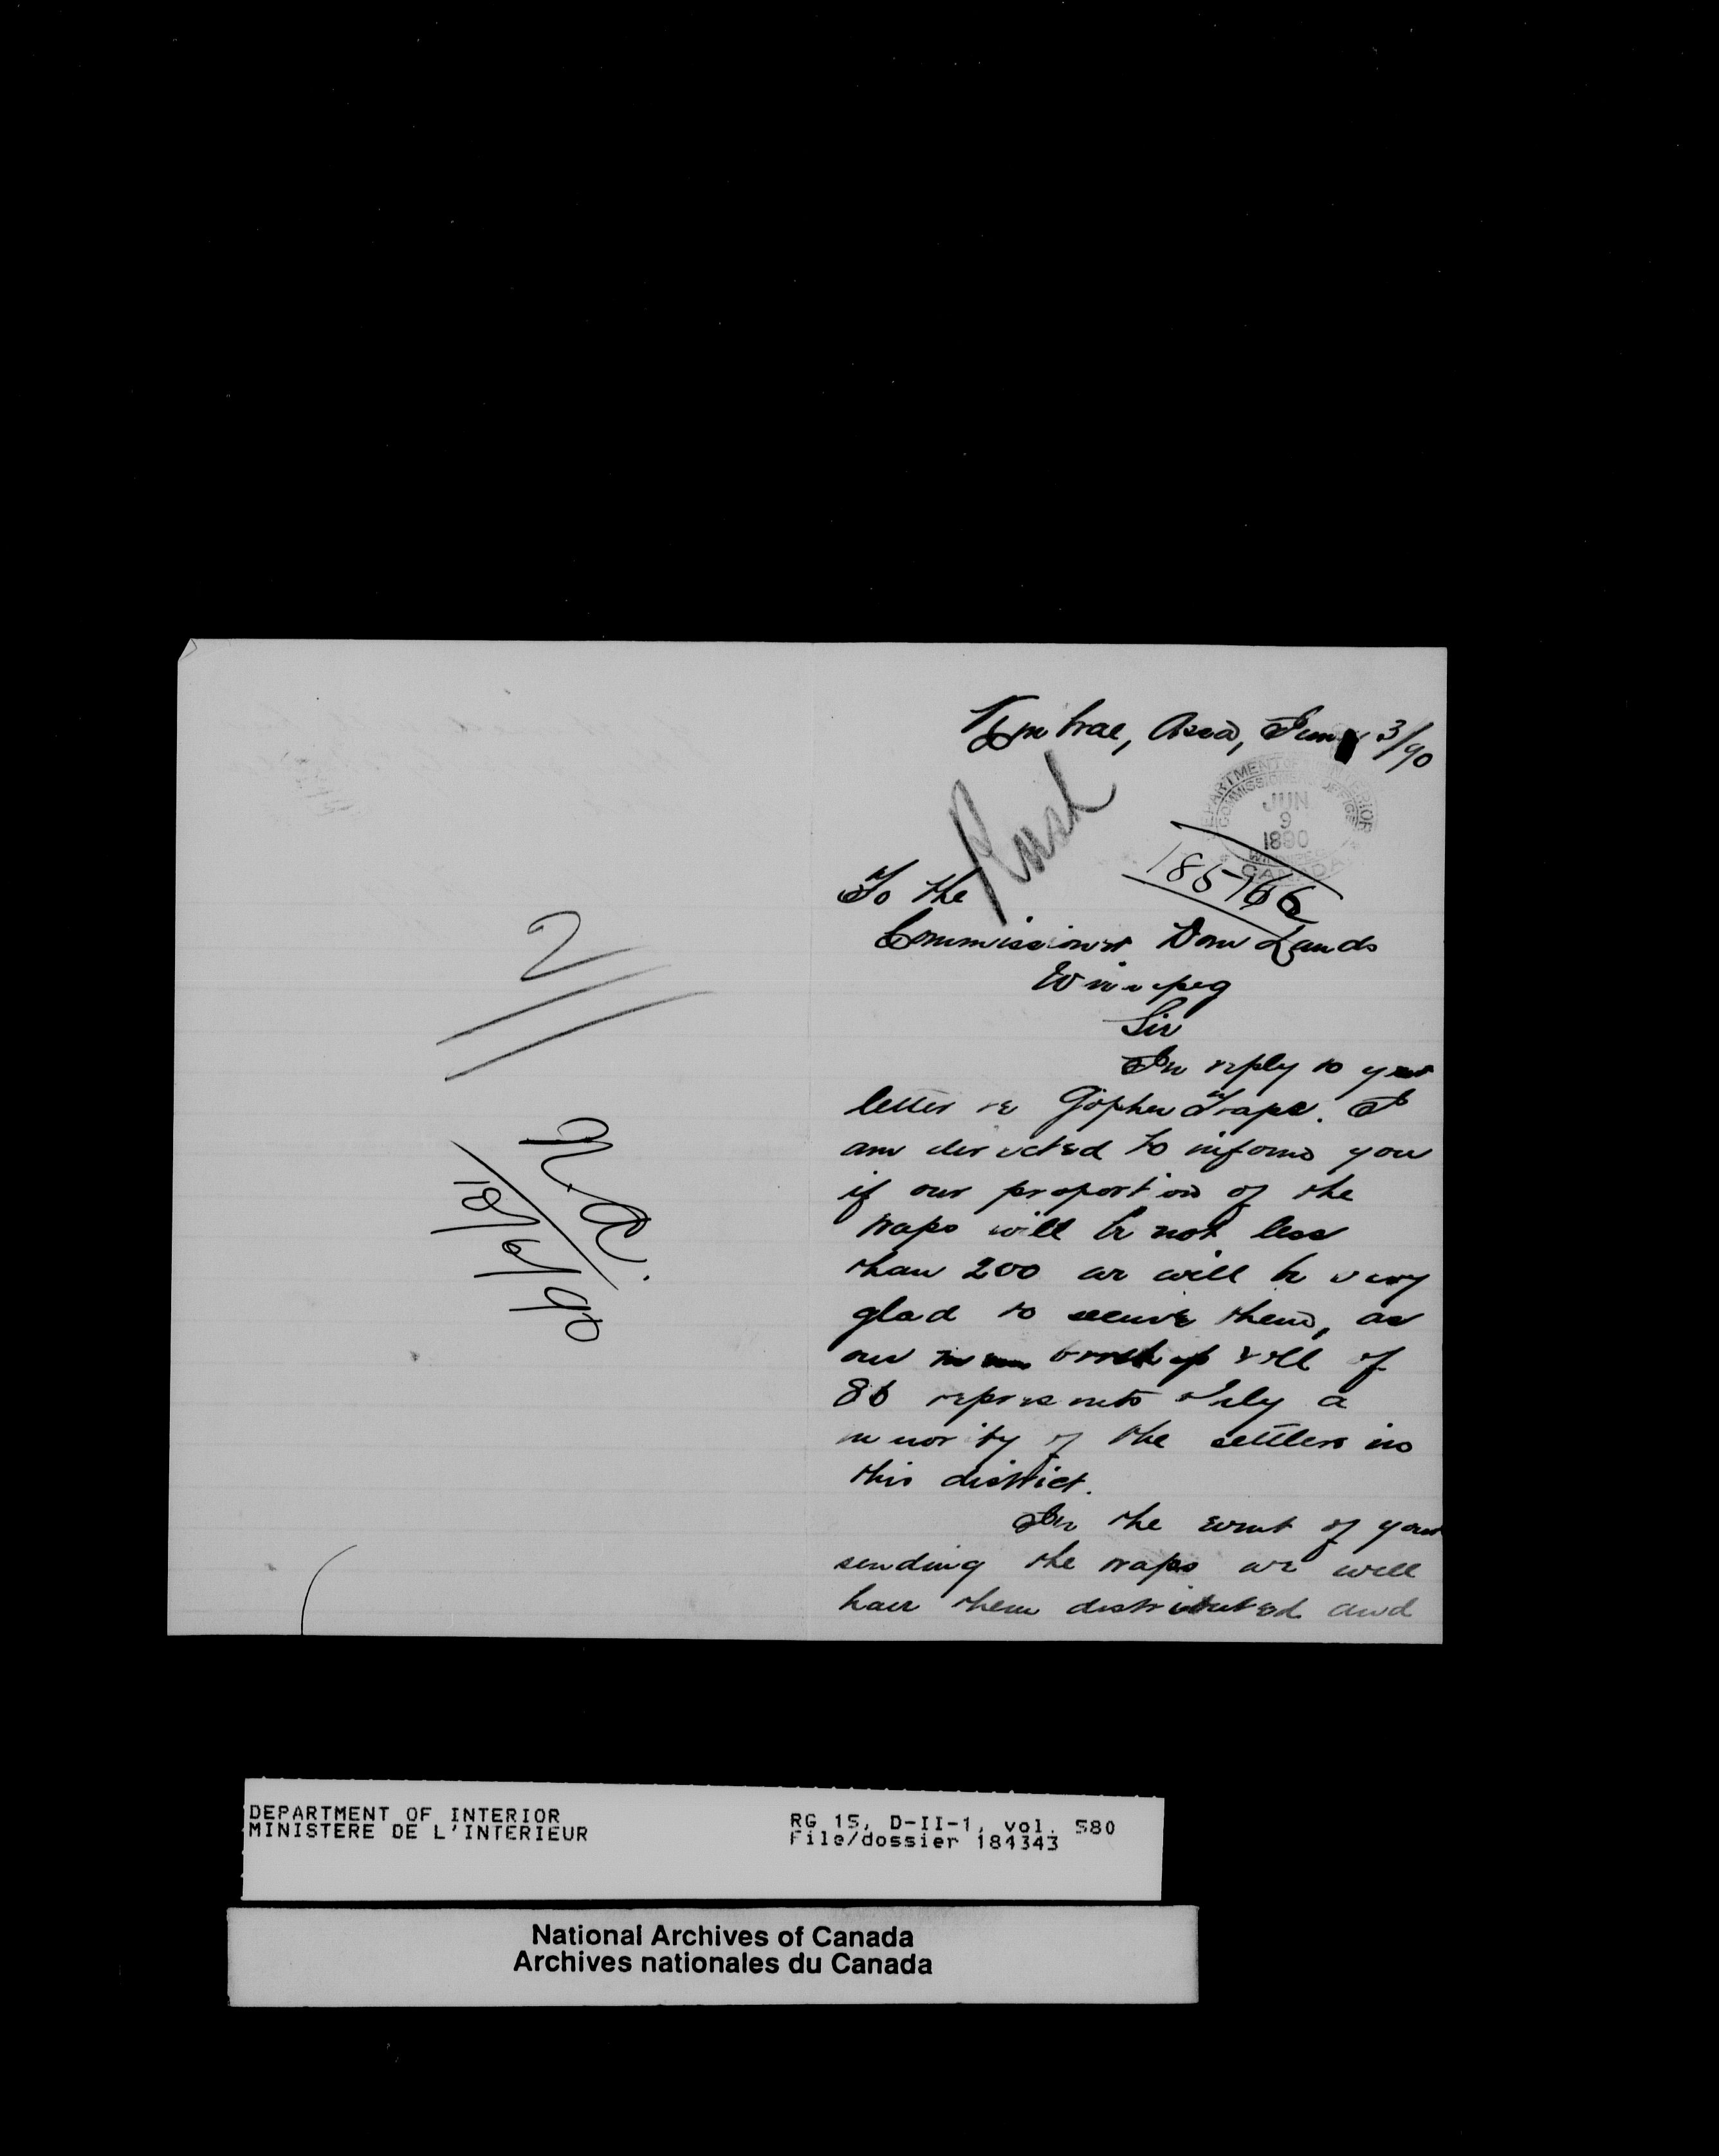 Assa, June 3/90
Rush
DEPARTMENT OF INTERIOR
COMMISSIONERS OFFICE
JUN
9
1890
WINNIPEG
CANADA
185166
To the
Commissioner Dom Lands
Winnipeg
Sir
In reply to your
letter re Gopher Traps. I
am directed to inform you
if our proportion of the
traps will be not less
than 200 we will be very
glad to secure them, as
our membership roll of
86 represents only a
minority of the settlers in
this district.
In the event of your
sending the traps we will
have them distributed and
2
N.A.
18/6/90
DEPARTMENT OF INTERIOR
MINISTERE DE L'INTERIEUR
RG 15, D-II-1, vol. 580
File/dossier 184343
National Archives of Canada
Archives nationales du Canada